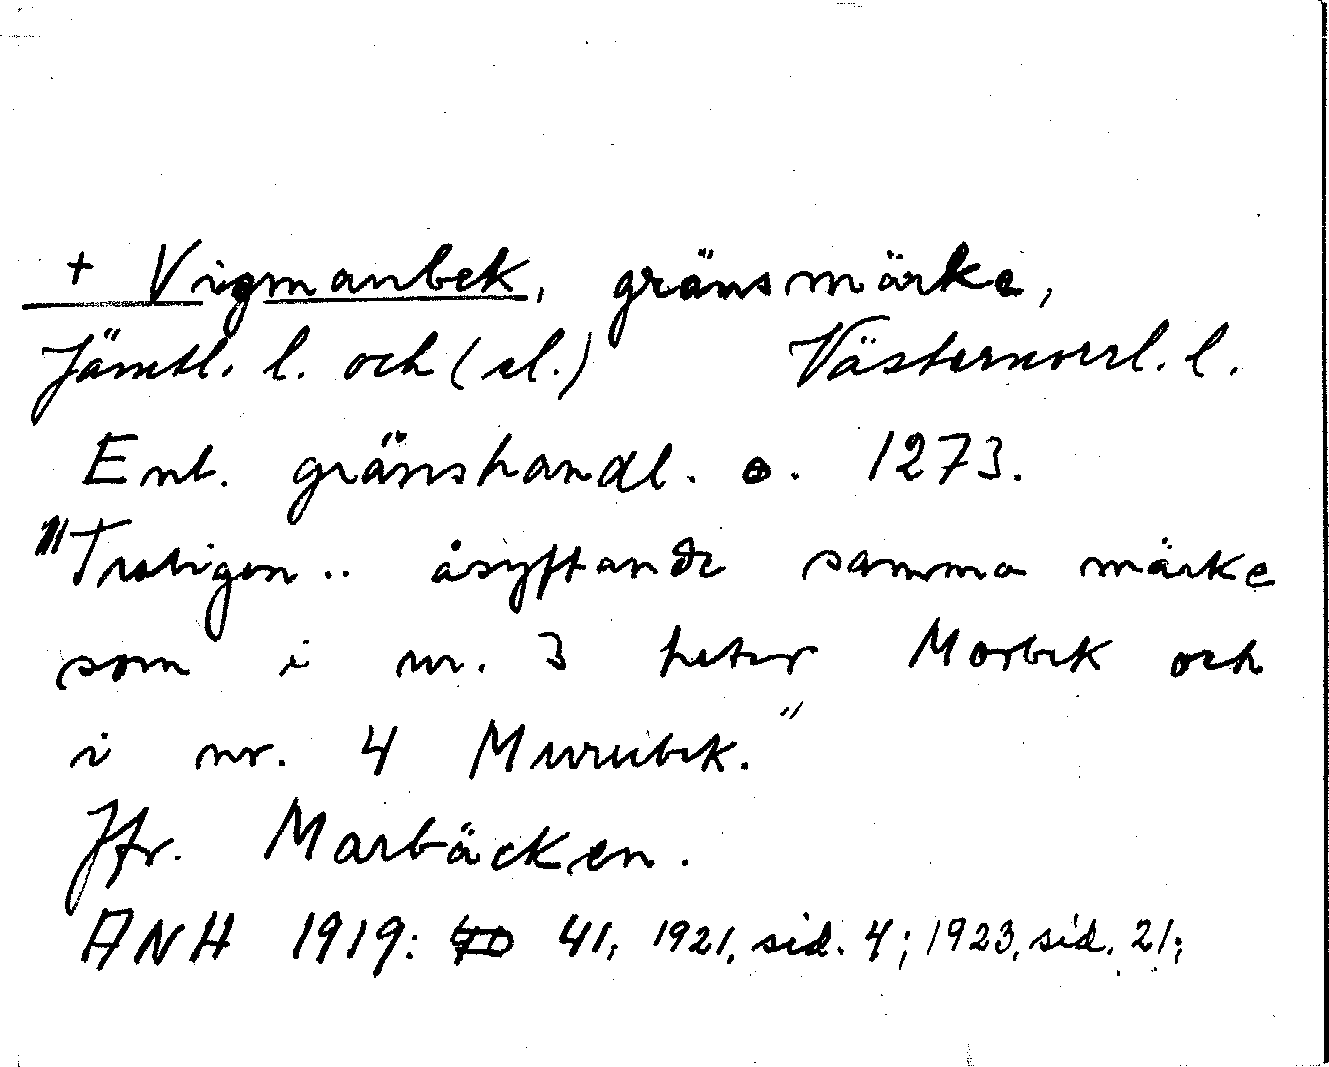 + Vigmanbek, gränsmärke,
Jämtl. l. och (el.) Västernorrl. l.
Enl. gränshandl. o. 1273.
"Troligen .. åsyftande samma märke
som i nr. 3 heter Morbek och
i nr. 4 Murubek."
Jfr. Marbäcken.
ANH 1919: 41; 1921, sid. 4; 1923, sid. 21;